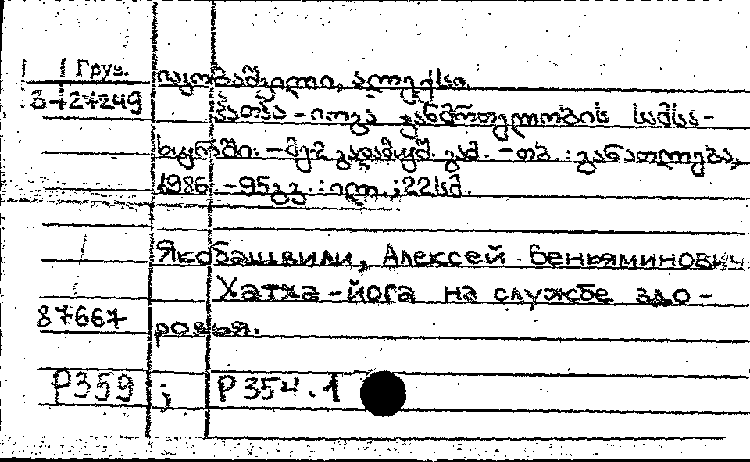 Груз. იაკობაშვილი, ალექსი.
3-27249 ჰათჰა-იოგა ჯანმრთელობის სამსა-
ხურში. - მე-2 გადამუშ. გამ. - თბ. : განათლება,
1986. - 95გვ. : ილ. ; 22სმ.
Якобашвили, Алексей Беньяминович
Хатха-йога на службе здо-
87667 ровья.
Р359 ; Р354.1